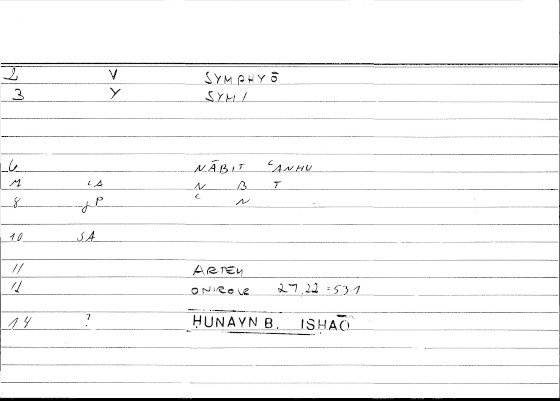 2 V SYMPHYŌ
3 Y SYM/
6 NĀBIT ʿANHU
7 LA N B T
8 gP ʿ N
10 SA
11 ARTEM
12 ONIROK 27,22 = 53,1
14 ? ḤUNAYN B. ISḤĀQ